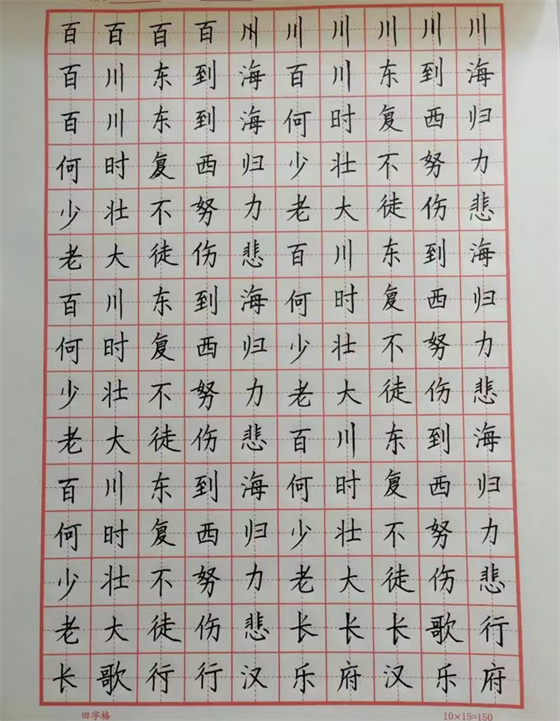 百百百百川川川川川川
百川东到海百川东到海
百川东到海何时复西归
何时复西归少壮不努力
少壮不努力老大徒伤悲
老大徒伤悲百川东到海
百川东到海何时复西归
何时复西归少壮不努力
少壮不努力老大徒伤悲
老大徒伤悲百川东到海
百川东到海何时复西归
何时复西归少壮不努力
少壮不努力老大徒伤悲
老大徒伤悲长长长歌行
长歌行行汉乐府汉乐府
田字格 10×15=150